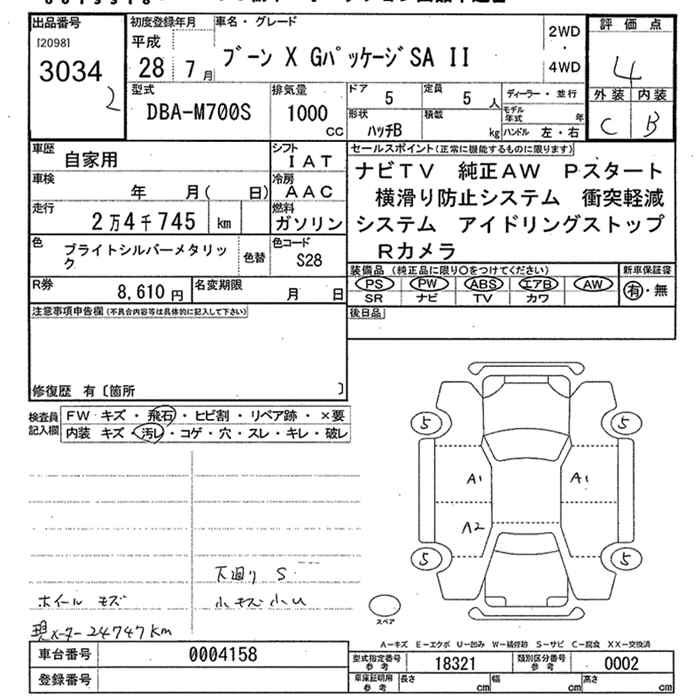 出品番号
[2098]
3034
2
初度登録年月
平成
28年7月
車名・グレード
ブーン X GパッケージSA II
2WD
・
4WD
評価点
4
外装 内装
C B
型式
DBA-M700S
排気量
1000
CC
ドア
5
定員
5人
ディーラー・並行
形状
ハッチB
積載
kg
モデル年式 年
ハンドル 左・右
車歴
自家用
シフト
IAT
車検
年 月( 日)
冷房
AAC
走行
2万4千745 km
燃料
ガソリン
色
ブライトシルバーメタリック
色替
色コード
S28
セールスポイント(正常に機能するものに限ります)
ナビTV 純正AW Pスタート
横滑り防止システム 衝突軽減
システム アイドリングストップ
Rカメラ
R券
8,610円
名変期限
月 日
装備品 (純正品に限り○をつけてください)
PS PW ABS エアB AW
SR ナビ TV カワ
新車保証書
有・無
注意事項申告欄(不具合内容等は具体的に記入して下さい)
後日品
修復歴 有 〔箇所 〕
検査員記入欄
FW キズ・飛石・ヒビ割・リペア跡・×要
内装 キズ・汚レ・コゲ・穴・スレ・キレ・破レ
5 5
A1 A1
A2
5 5
スペア
下廻り S
ホイール キズ 小キズ小U
現メーター24747km
A-キズ E-エクボ U-凹み W-補修跡 S-サビ C-腐食 XX-交換済
車台番号
0004158
登録番号
型式指定番号参考
18321
類別区分番号参考
0002
車庫証明用参考
長さ cm 幅 cm 高さ cm